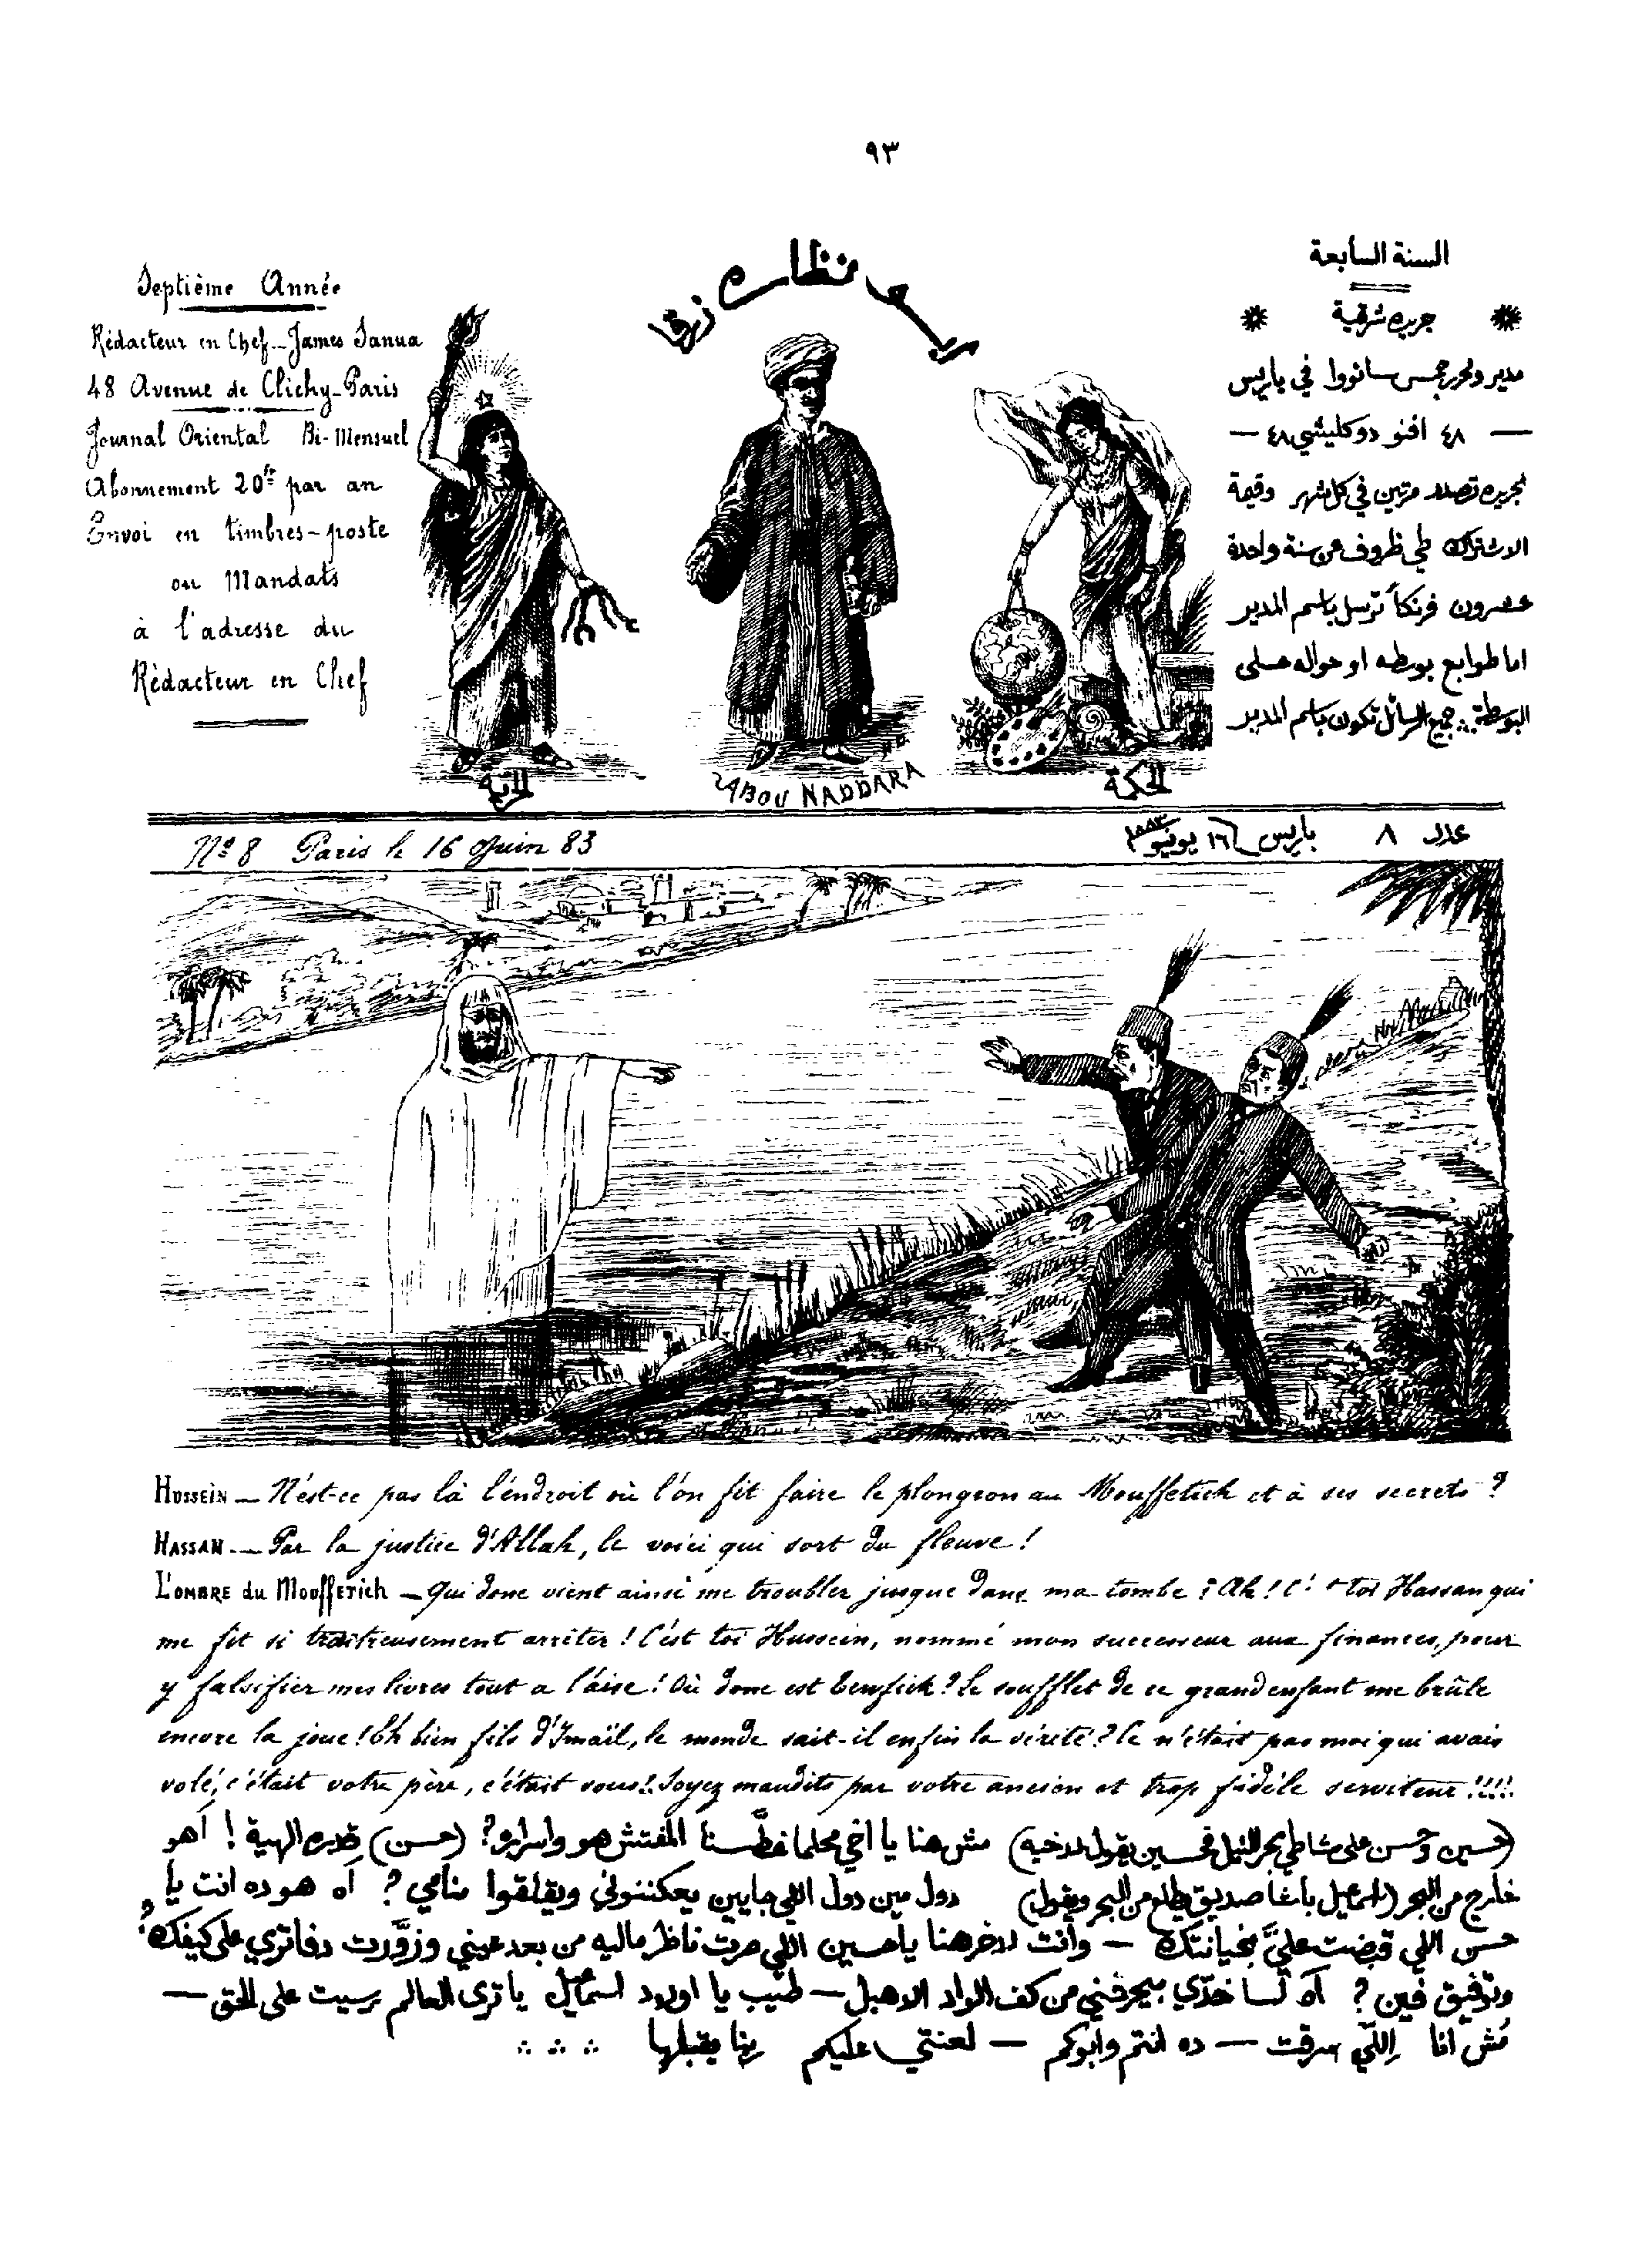 ٩٣
Septième Année
Rédacteur en Chef_James Sanua
48 Avenue de Clichy_Paris
Journal Oriental Bi-Mensuel
Abonnement 20fr par an
Envoi en timbres-poste
ou Mandats
à l'adresse du
Rédacteur en Chef
نظاره زرقا
السنة السابعة
جريده شرقية
مدير ومحرر جمس سانووا في باريس
— ٤٨ افنو دو كليشي ٤٨ —
الجريده تصدر مرتين في كل شهر وقيمة
الاشتراك في ظروف سنة واحدة
عشرون فرنكاً ترسل باسم المدير
اما طوابع بوسطه او حواله على
البوسطة جميع الرسائل تكون باسم المدير
الحرية
ABOU NADDARA
الحكمة
Nº 8 Paris le 16 Juin 83
عدد ٨ باريس ١٦ يونيو ١٨٨٣
HUSSEIN — N'est-ce pas là l'endroit où l'on fit faire le plongeon au Mouffetich et à ses secrets ?
HASSAN — Par la justice d'Allah, le voici qui sort du fleuve !
L'OMBRE du MOUFFETICH — Qui donc vient ainsi me troubler jusque dans ma tombe ? Ah ! C'est toi Hassan qui
me fit si traitreusement arrêter ! C'est toi Hussein, nommé mon successeur aux finances, pour
y falsifier mes livres tout a l'aise ! Où donc est Tewfick ? Le soufflet de ce grand enfant me brûle
encore la joue ! Eh bien fils d'Ismaïl, le monde sait-il enfin la vérité ? Ce n'était pas moi qui avais
volé, c'était votre père, c'était vous !! Soyez maudits par votre ancien et trop fidèle serviteur !!!!
(حسين وحسن على شاطي بحر النيل فحسين يقول لاخيه) مش هنا يا اخي محلما غطَّسنا المفتش هو واسراره؟ (حسن) قدره الهية ! أهو
خارج من البحر (اسماعيل باشا صديق يطلع من البحر ويقول) دول مين دول اللي جايين يعكننوني ويقلقوا منامي؟ آه هو ده انت يا
حسن اللي قبضت عليَّ بخيانتك — وانت لاخر هنا ياحسين اللي صرت ناظر ماليه من بعد عيني وزوَّرت دفاتري على كيفك
وتوفيق فين؟ آه لسا خدّي بيحرقني من كف الواد الاهبل — طيّب يا اولاد اسماعيل يا ترى العالم رسيت على الحق —
مُش انا اِللّي سرقت — ده انتم وابوكم — لعنتي عليكم ربنا يقبلها